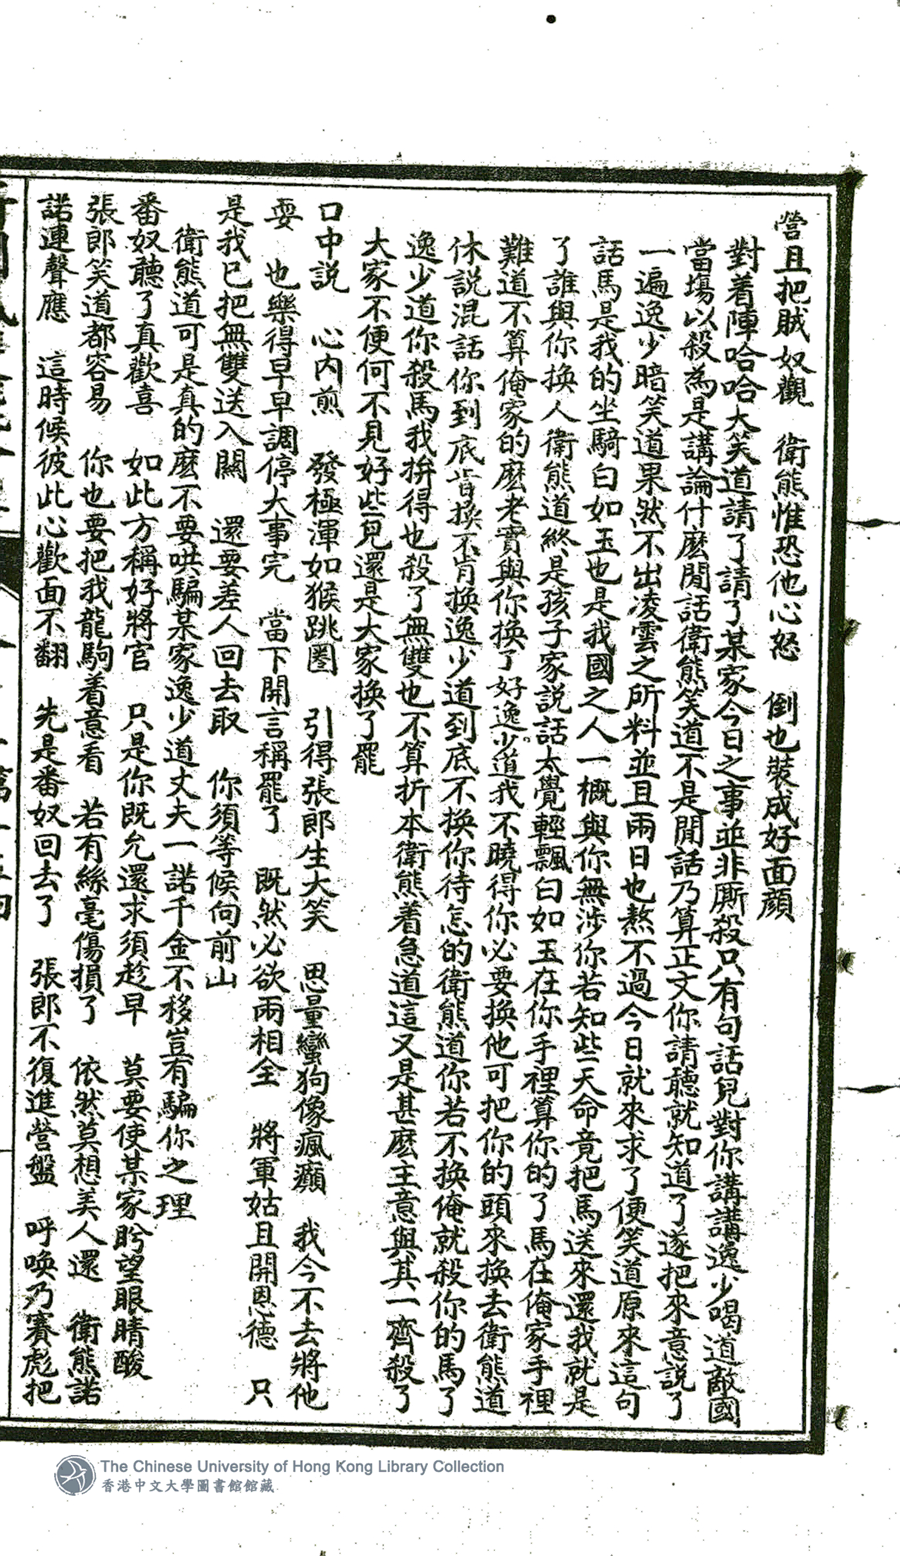 營且把賊奴觀　衛熊惟恐他心怒　倒也裝成好面顏
對着陣哈哈大笑道請了請了某家今日之事並非廝殺只有句話兒對你講講逸少喝道敵國
當場以殺為是講論什麼閒話衛熊笑道不是閒話乃算正文你請聽就知道了遂把來意說了
一遍逸少暗笑道果然不出凌雲之所料並且兩日也熬不過今日就來求了便笑道原來這句
話馬是我的坐騎白如玉也是我國之人一概與你無涉你若知些天命竟把馬送來還我就是
了誰與你換人衛熊道終是孩子家說話太覺輕飄白如玉在你手裡算你的了馬在俺家手裡
難道不算俺家的麼老實與你換了好逸少道我不曉得你必要換他可把你的頭來換去衛熊道
休說混話你到底肯換不肯換逸少道到底不換你待怎的衛熊道你若不換俺就殺你的馬了
逸少道你殺馬我拚得也殺了無雙也不算折本衛熊着急道這又是甚麼主意與其一齊殺了
大家不便何不見好些兒還是大家換了罷
口中說　心內煎　發極渾如猴跳圈　引得張郎生大笑　思量蠻狗像瘋癲　我今不去將他
耍　也樂得早早調停大事完　當下開言稱罷了　既然必欲兩相全　將軍姑且開恩德　只
是我已把無雙送入關　還要差人回去取　你須等候向前山
衛熊道可是真的麼不要哄騙某家逸少道丈夫一諾千金不移豈有騙你之理
番奴聽了真歡喜　如此方稱好將官　只是你既允還求須趁早　莫要使某家盻望眼睛酸
張郎笑道都容易　你也要把我龍駒着意看　若有絲毫傷損了　依然莫想美人還　衛熊諾
諾連聲應　這時候彼此心歡面不翻　先是番奴回去了　張郎不復進營盤　呼喚乃賽彪把
The Chinese University of Hong Kong Library Collection
香港中文大學圖書館館藏